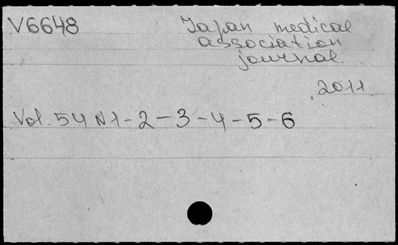 V6648
Japan medical
association
journal.
2011
Vol. 54 N1-2-3-4-5-6